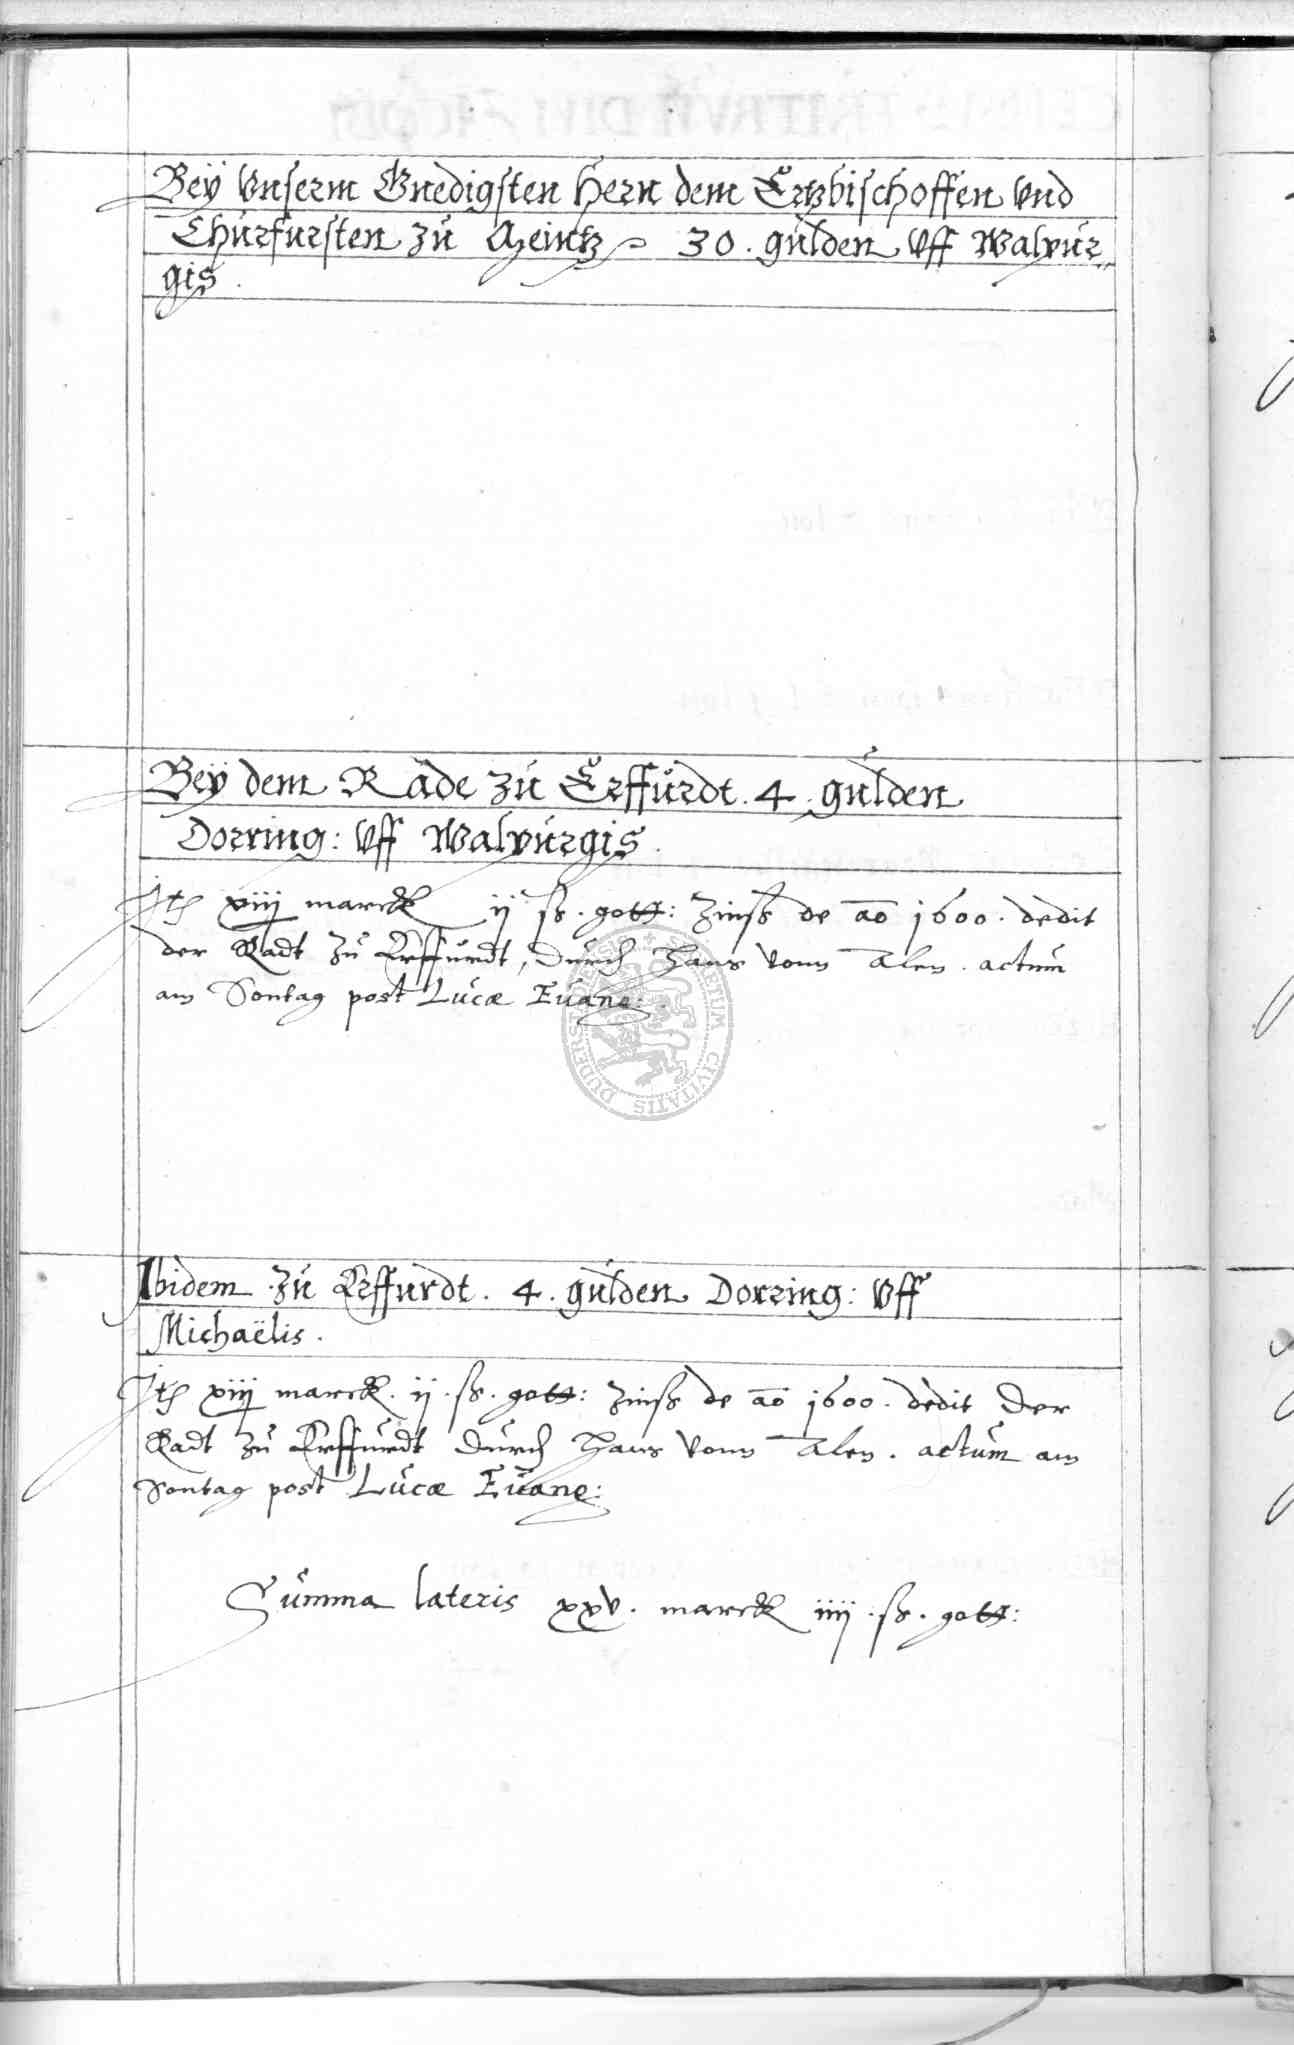 Beÿ Vnserm Gnedigsten Hern dem Ertzbischoffen Vnd
Churfursten zu Meintz 30. gulden Vff Walpur„
gis.
Beÿ dem Rade zu Erffurdt. 4. gulden
Dorring: Vff Walpurgis.
Itē xiij marck ij ß. gott: Zinß de aō 1600. dedit
der Radt zu Erffurdt, durch Hans vonn Alen. actum
am Sontag post Lucæ Euang:
Ibidem zu Erffurdt. 4. gulden Dorring: Vff
Michaëlis.
Itē xiij marck. ij. ß. gott: Zinß de aō 1600. dedit der
Radt zu Erffurdt durch Hans vonn Alen. actum am
Sontag post Lucæ Euang:
Summa lateris xxv. marck iiij. ß. gott:
SECRETUM CIVITATIS DUDERSTADENSIS